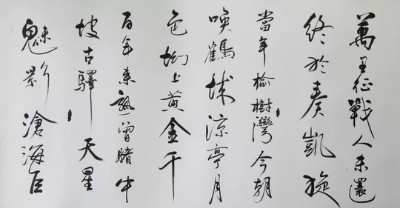 萬里征戰人未還
終於奏凱旋
當年榆樹灣今朝
喚鶴城涼亭月
色坳上黃金千
百年曾睹牛
坡古驛 天星
魅影滄海